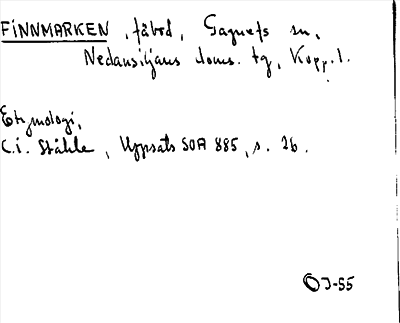 FINNMARKEN, fäbod, Gagnefs sn,
Nedansiljans doms. tg, Kopp. l.
Etymologi,
C.I. Ståhle, Uppsats SOA 885, s. 26.
OJ-55